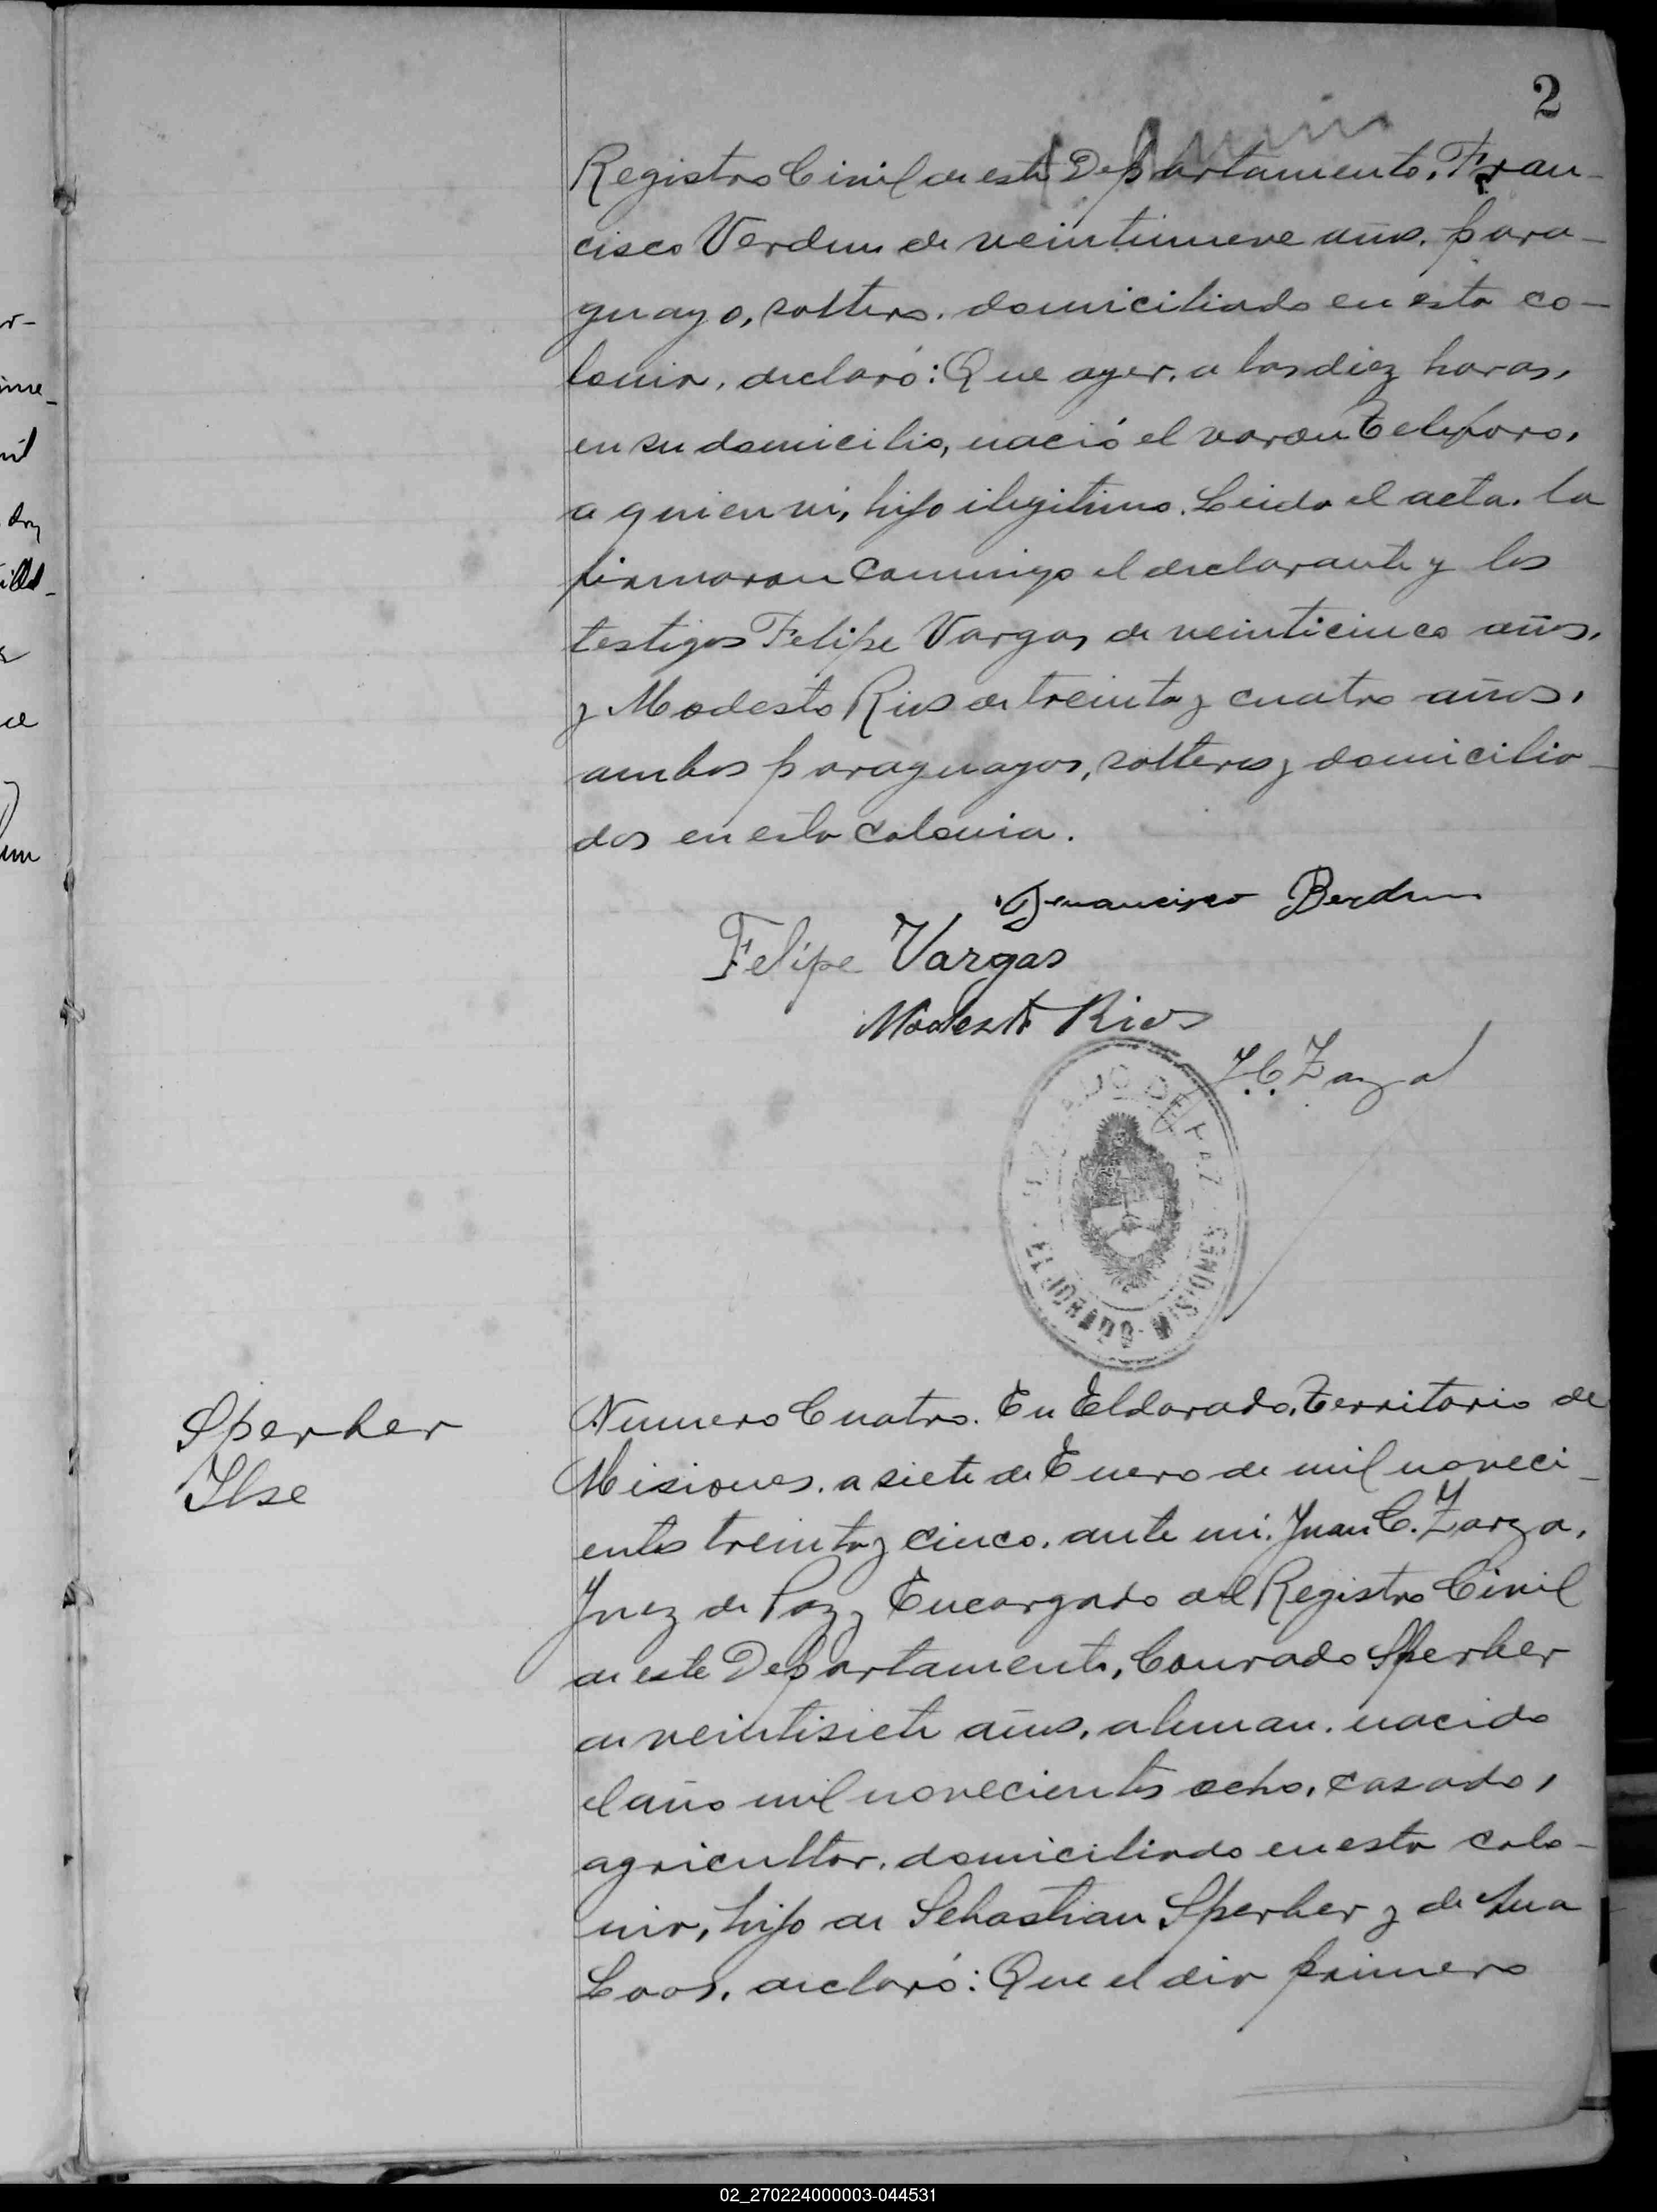 2
Registro Civil de este Departamento, Fran-
cisco Verdun de veintinueve años, para-
guayo, soltero, domiciliado en esta co-
lonia, declaró: Que ayer, a las diez horas,
en su domicilio, nació el varon Telesforo,
a quien vi, hijo ilegitimo. Leida el acta, la
firmaron conmigo el declarante y los
testigos Felipe Vargas de veinticinco años,
y Modesto Rios de treinta y cuatro años,
ambos paraguayos, solteros y domicilia-
dos en esta colonia.
Francisco Berdun
Felipe Vargas
Modesto Rios
J.C. Zarza
JUZGADO DE PAZ
ELDORADO - MISIONES
Sperber
Ilse
Numero Cuatro. En Eldorado, Territorio de
Misiones, a siete de Enero de mil noveci-
entos treinta y cinco, ante mi, Juan C. Zarza,
Juez de Paz y Encargado del Registro Civil
de este Departamento, Conrado Sperber
de veintisiete años, aleman, nacido
el año mil novecientos ocho, casado,
agricultor, domiciliado en esta colo-
nia, hijo de Sebastian Sperber y de Ana
Loos, declaró: Que el dia primero
02_270224000003-044531